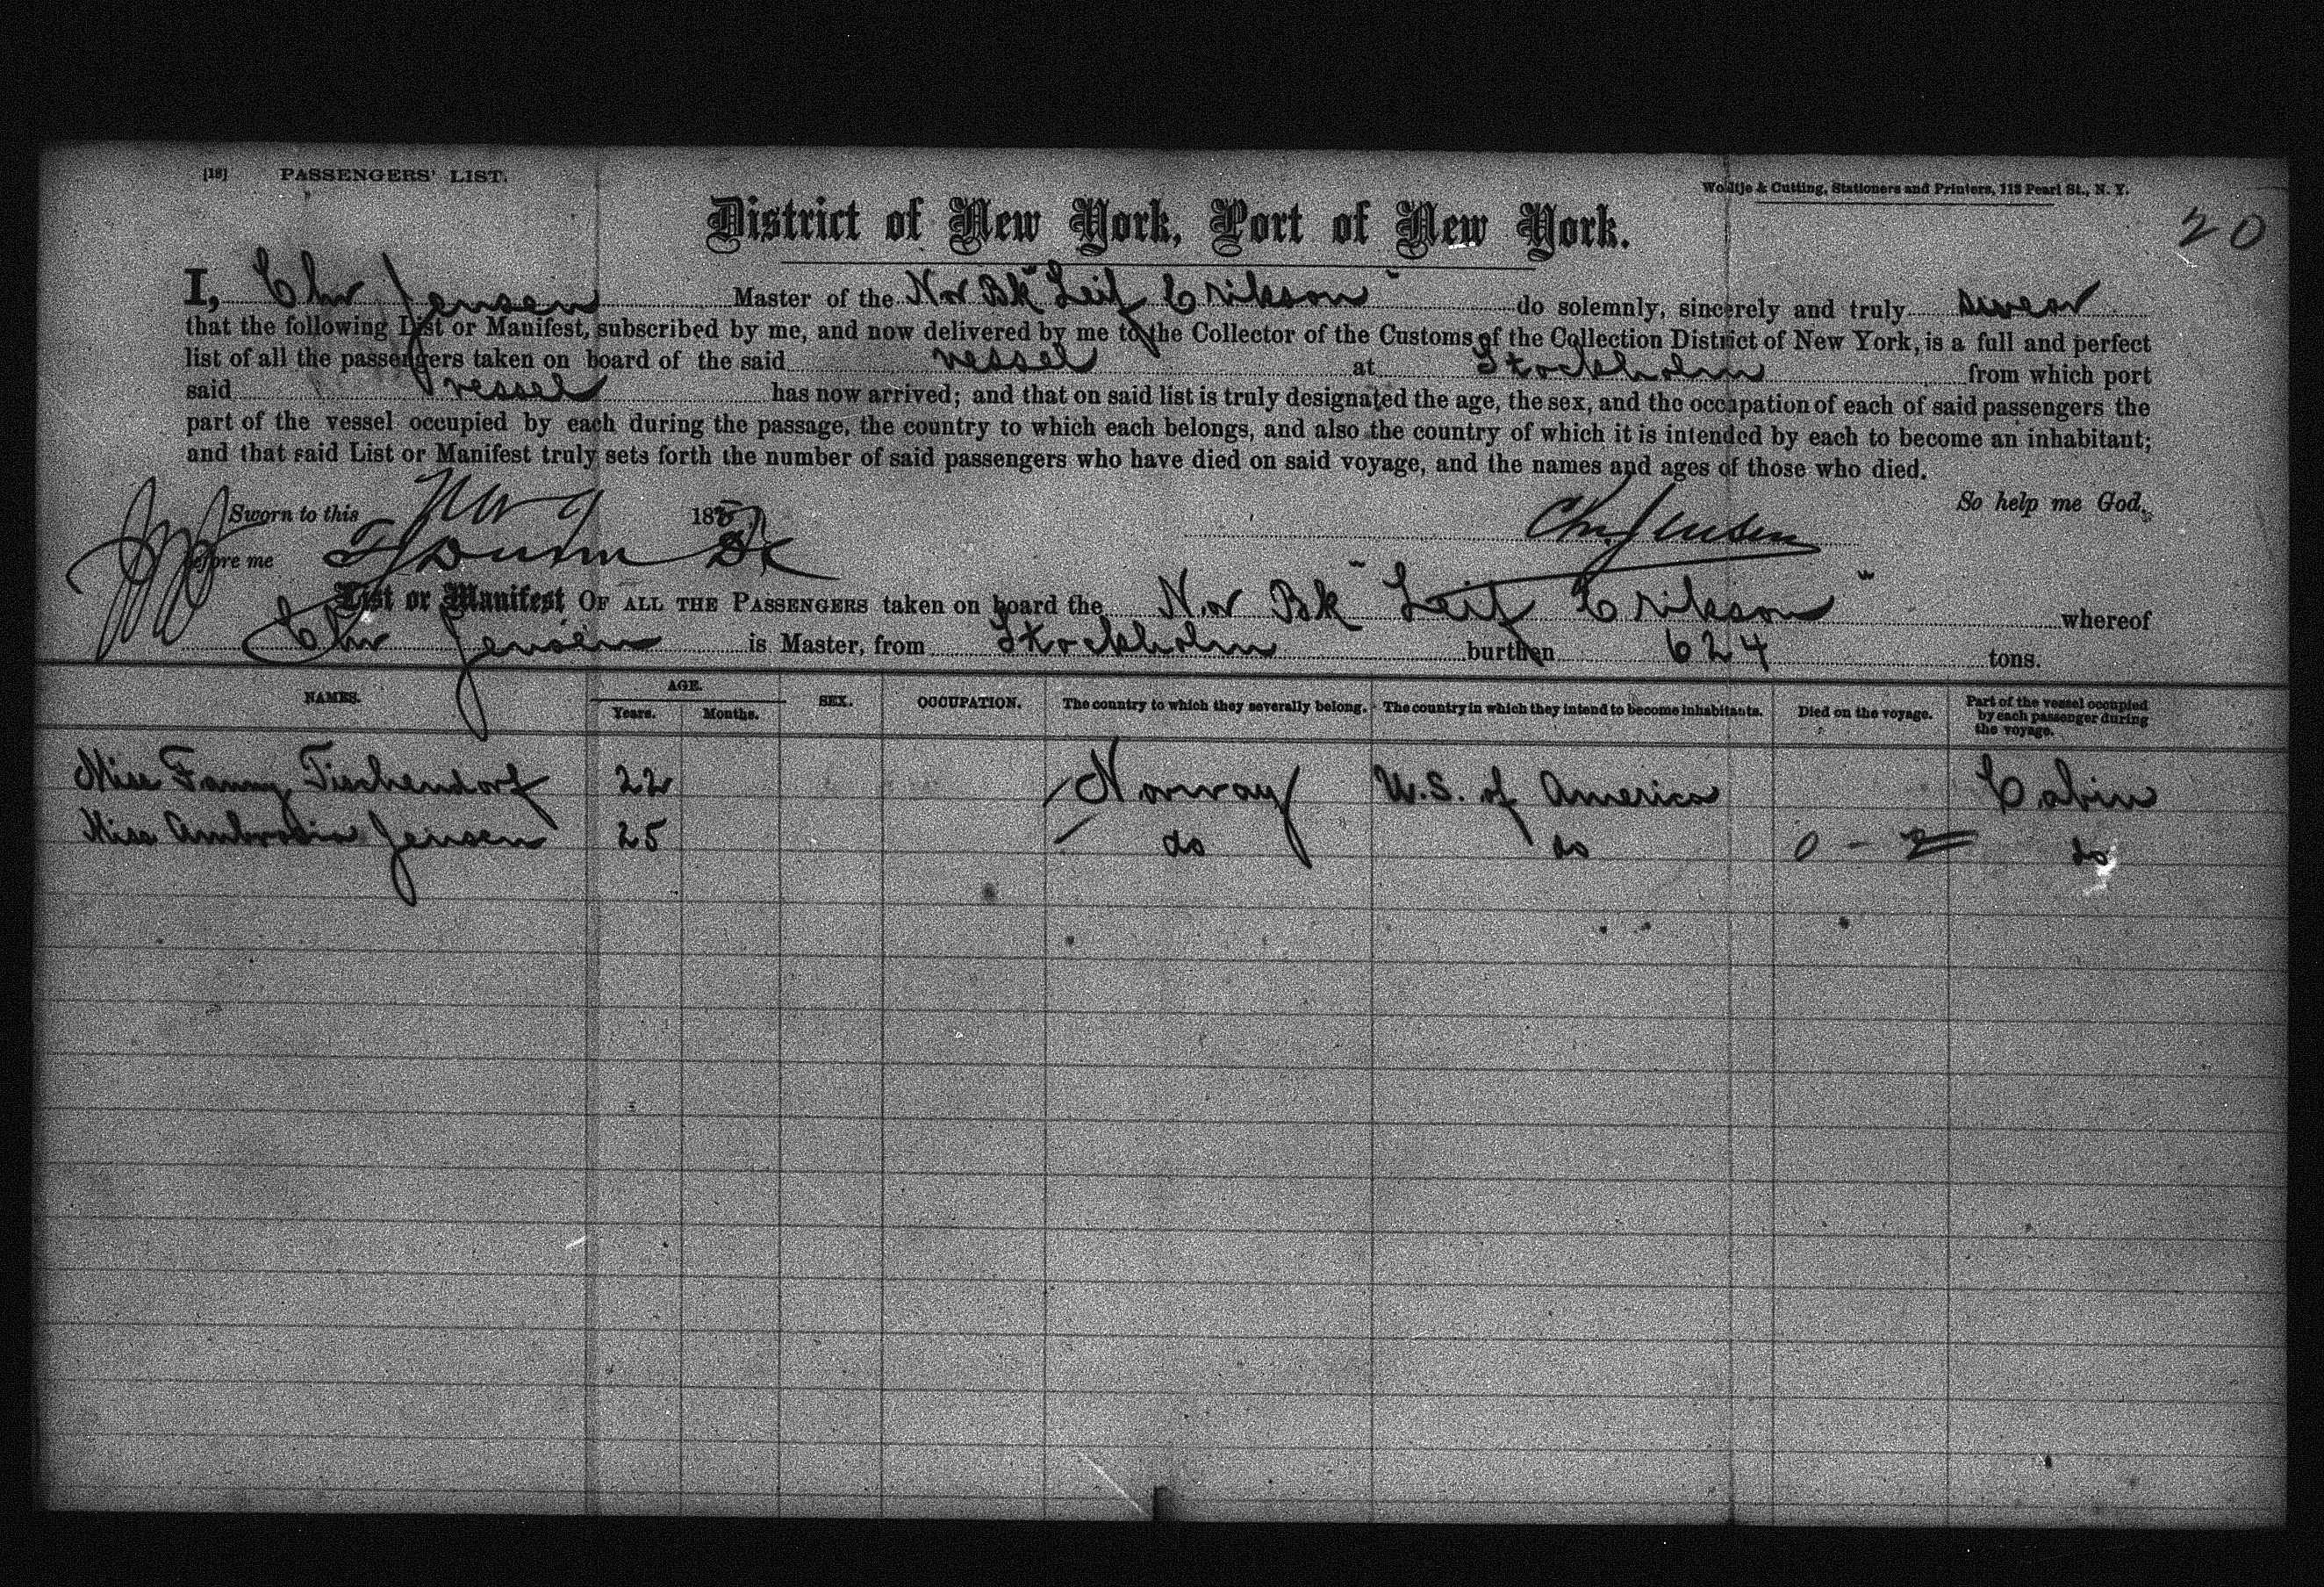 [18] PASSENGERS' LIST.
Woldtje & Cutting, Stationers and Printers, 113 Pearl St., N. Y.
20
District of New York, Port of New York.
I, Chr Jensen Master of the Nor Bk "Leif Erikson" do solemnly, sincerely and truly swear
that the following List or Manifest, subscribed by me, and now delivered by me to the Collector of the Customs of the Collection District of New York, is a full and perfect
list of all the passengers taken on board of the said vessel at Stockholm from which port
said vessel has now arrived; and that on said list is truly designated the age, the sex, and the occupation of each of said passengers the
part of the vessel occupied by each during the passage, the country to which each belongs, and also the country of which it is intended by each to become an inhabitant;
and that said List or Manifest truly sets forth the number of said passengers who have died on said voyage, and the names and ages of those who died.
So help me God.
Sworn to this Nov 9 188
Chr. Jensen
before me
List or Manifest OF ALL THE PASSENGERS taken on board the Nor Bk "Leif Erikson" whereof
Chr Jensen is Master, from Stockholm burthen 624 tons.
NAMES. AGE. SEX. OCCUPATION. The country to which they severally belong. The country in which they intend to become inhabitants. Died on the voyage. Part of the vessel occupied by each passenger during the voyage.
Years. Months.
Miss Fanny Tischendorf 22 Norway U.S. of America Cabin
Miss Ambrosia Jensen 25 do do 0 - 2 do